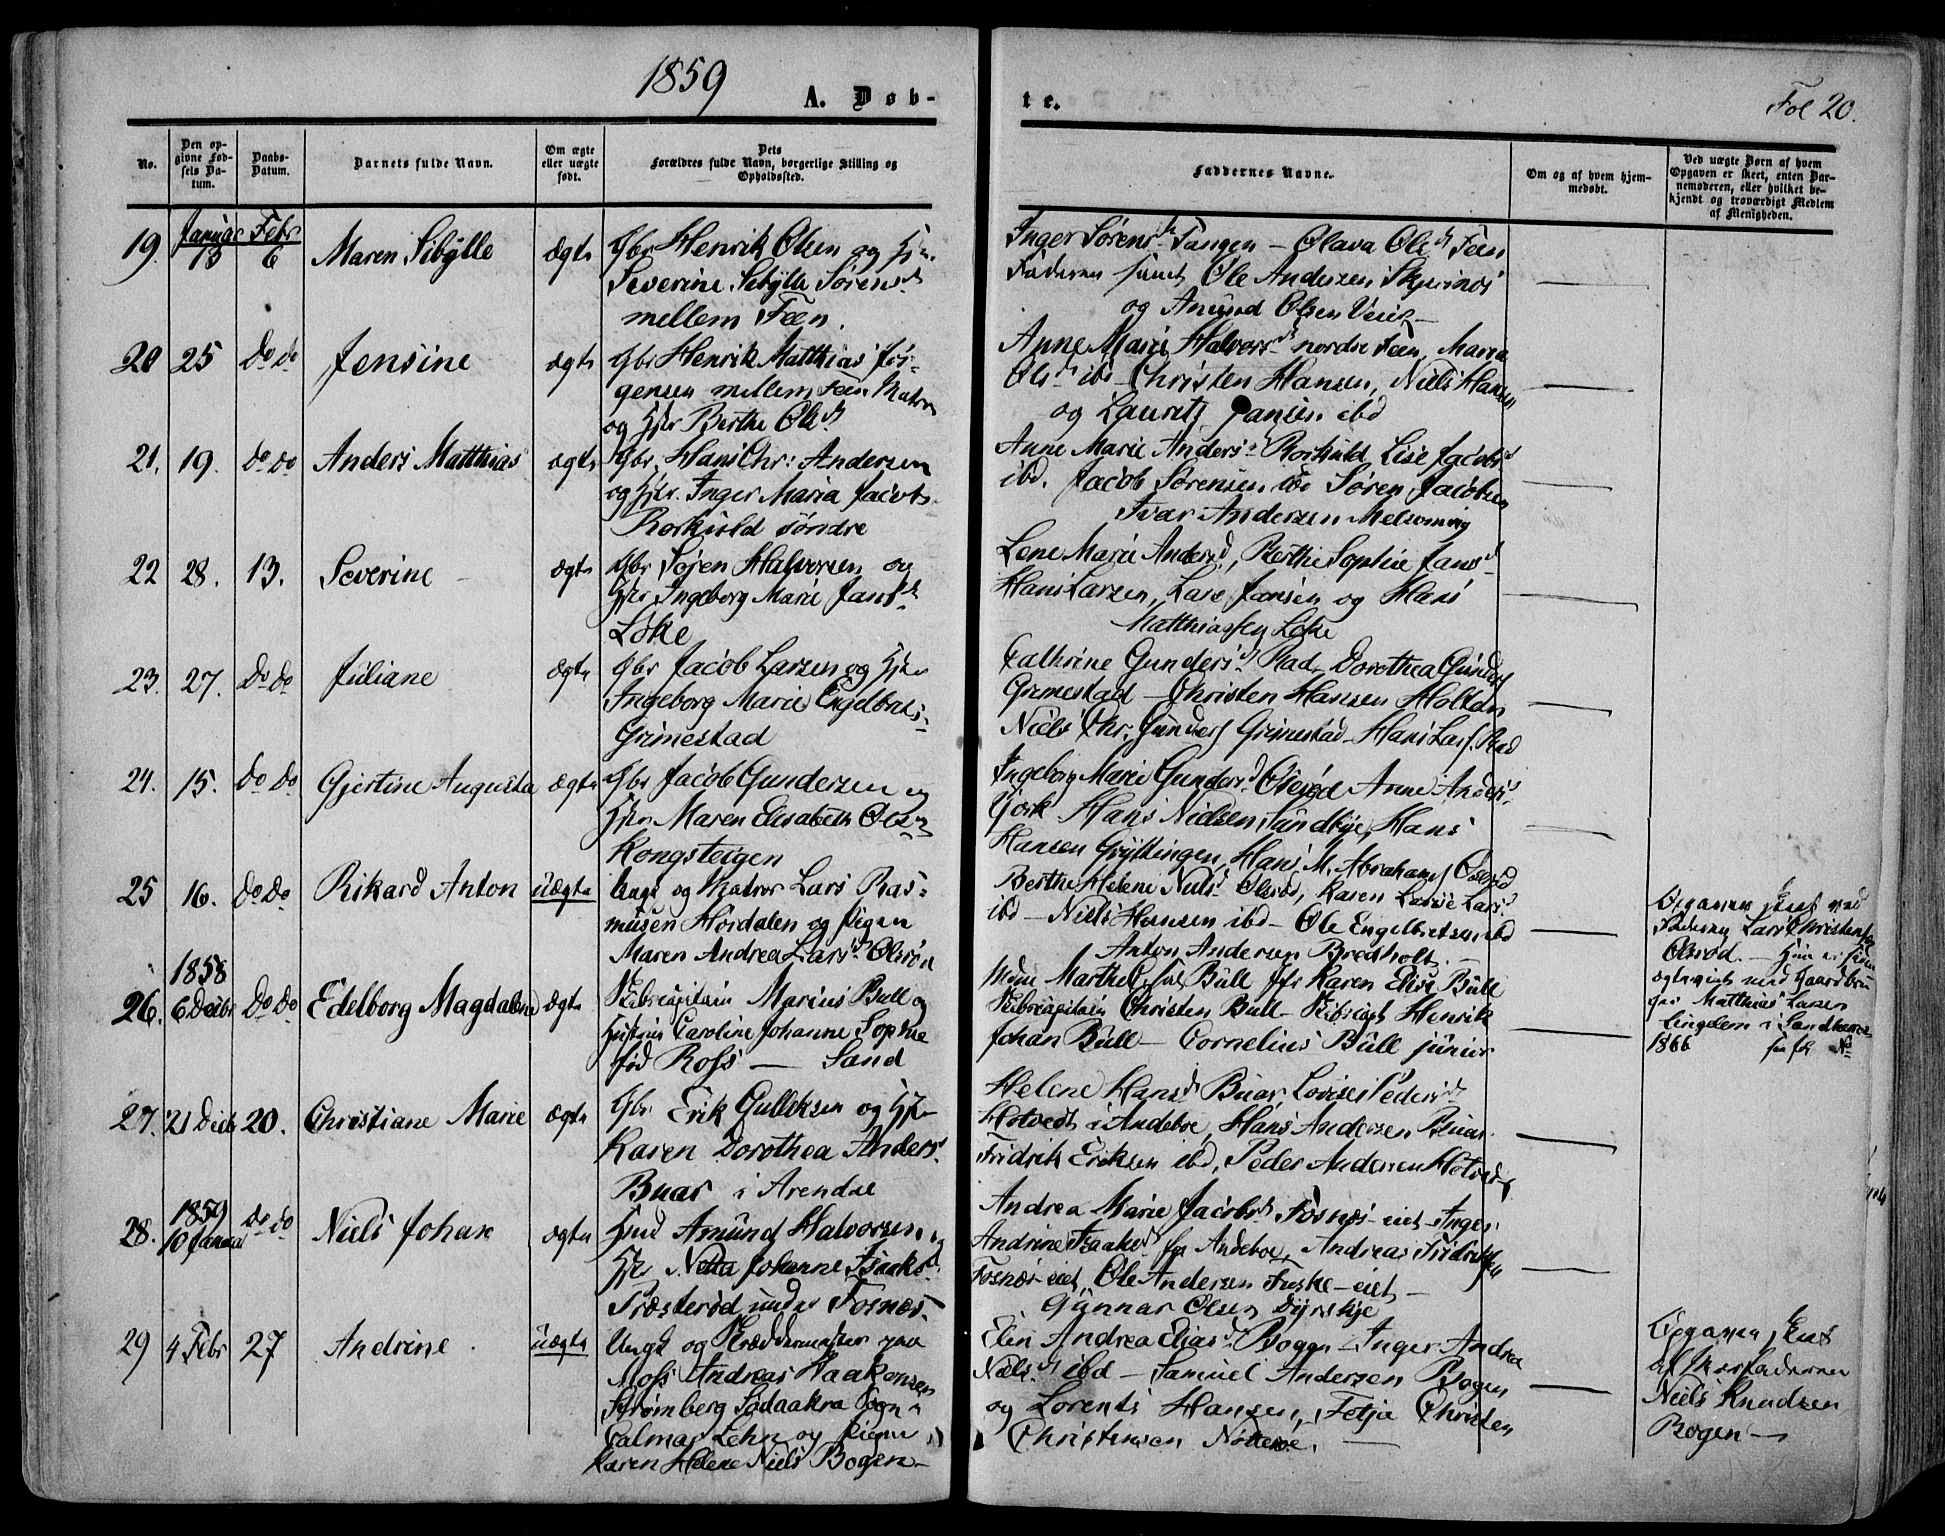 1859
A. Døb-
te.
Fol 20.
No.
Den opgivne Fødsels Datum.
Daabs-Datum.
Barnets fulde Navn.
Om ægte eller uægte født.
Dets Forældres fulde Navn, borgerlige Stilling og Opholdssted.
Faddernes Navne.
Om og af hvem hjemmedøbt.
Ved uægte Børn af hvem Opgaven er skeet, enten Barnemoderen, eller hvilket bekjendt og troværdigt Medlem af Menigheden.
Januar Febr
19. 13 6 Maren Sibylle ægte Gbr Henrik Olsen og Hu.
Severine Sibylle Sørensd
mellem Feen.
Inger Sørensd Tangen – Olava Olsd Feen
Faderen samt Ole Andersen
og Amund Olsen
20 25 do do Jensine ægte Gbr Henrik Matthias Jør-
gensen mellem Feen Matros
og Hstr Berthe Olsd
Anne Marie Halvorsd nordre Feen, Maren
Olsd ibd – Christen Hansen, Niels Hansen
og Laurits Jansen ibd
21. 19. do do Anders Matthias ægte Gbr. Hans Chr: Andersen
og Hstr. Inger Maria Jacobs-
søndre
Anne Marie Andersd Lise Jacobsd
ibd. Jacob Sørensen ibd Søren Jacobsen
Ivar Andersen Melsomvig
22 28. 13. Severine – ægte Gbr Søren Halvorsen og
Hstr Ingeborg Marie Jansd
Løke
Lene Marie Andersd, Berthe Sophie Jansd
Hans Larsen, Lars Jansen og Hans
Matthiassen Løke
23. 27. do do Juliane ægte Gbr Jacob Larsen og Hstr
Ingeborg Marie Engelbrets-
Grimestad
Cathrine Gundersd Rad Dorothea Gundersd
Grimestad – Christen Hansen Holten
Niels Chr. Gunders Grimestad Hans Lars. Rad
24. 15. do do Gjertine Augusta ægte Gbr Jacob Gundersen og
Hstr Maren Elisabeth Olsen
Kongsteigen
Ingeborg Marie Gundersd Olsrød Anne Andersd
Hans Nielsen Sundbye, Hans
Hansen Gryttingen, Hans M. Abrahams Olsrød
25 16. do do Rikard Anton uægte Ungk og Matros Lars Ras-
musen Hosdalen og Pigen
Maren Andrea Larsd Olsrød
Berthe Helene Nielsd Olsrød, Karen Larsd
ibd – Niels Hansen ibd – Ole Engelbretsen ibd
Anton Andersen Bredholt. –
Opgaven skeet ved
Faderen Lars Christensen
Olsrød. – Hun er siden
ægteviet med Gaardbru-
ger Matthias Larsen
Lingelem i Sandherred
1866
1858
26. 6 Decbr do do Edelborg Magdalene ægte Skibscapitain Marius Bull og
Hustru Caroline Johanne Sophie
fød Ross – Sand
Mdm Marthe Bull Jfr Karen Elise Bull
Skibscapitain Christen Bull – Skibscapt Henrik
Johan Bull – Cornelius Bull junior
27. 21 Decb 20. Christiane Marie ægte Gbr Erik Gulleksen og Hstr
Karen Dorothea Andersd
Buar i Arendal
Helene Hansd Buar Lovise Pedersd
Hotvedt i Andeboe, Hans Andersen Buar
Fridrik Eriksen ibd, Peder Andersen Hotvedt
1859
28. 10 Januar do do Niels Johan ægte Hmd Amund Halvorsen og
Hstr Netta Johanne Isaksd
Præsterød under Fosnæs
Andrea Marie Jacobsd Fosnæs-eiet – Inger
Andrine Isaaksd fra Andeboe, Andreas Fridriksen
Fosnæs-eiet, Ole Andersen Fuske-eiet –
Gunnar Olsen
29 4 Febr 27 Andrine uægte Ungk og Skræddermester paa
Moss Andreas Haakonsen
Strømberg Sødaakra Sogn i
Calmar Lehn og Pigen
Karen Helene Niels Bogen –
Elen Andrea Eliasd Bogen – Inger Andrea
Nielsd ibd – Samuel Andersen Bogen
og Lorents Hansen, Fetja Christen
Christensen Nøtterøe.
Opgaven skeet
af Morfaderen
Niels Knudsen
Bogen –